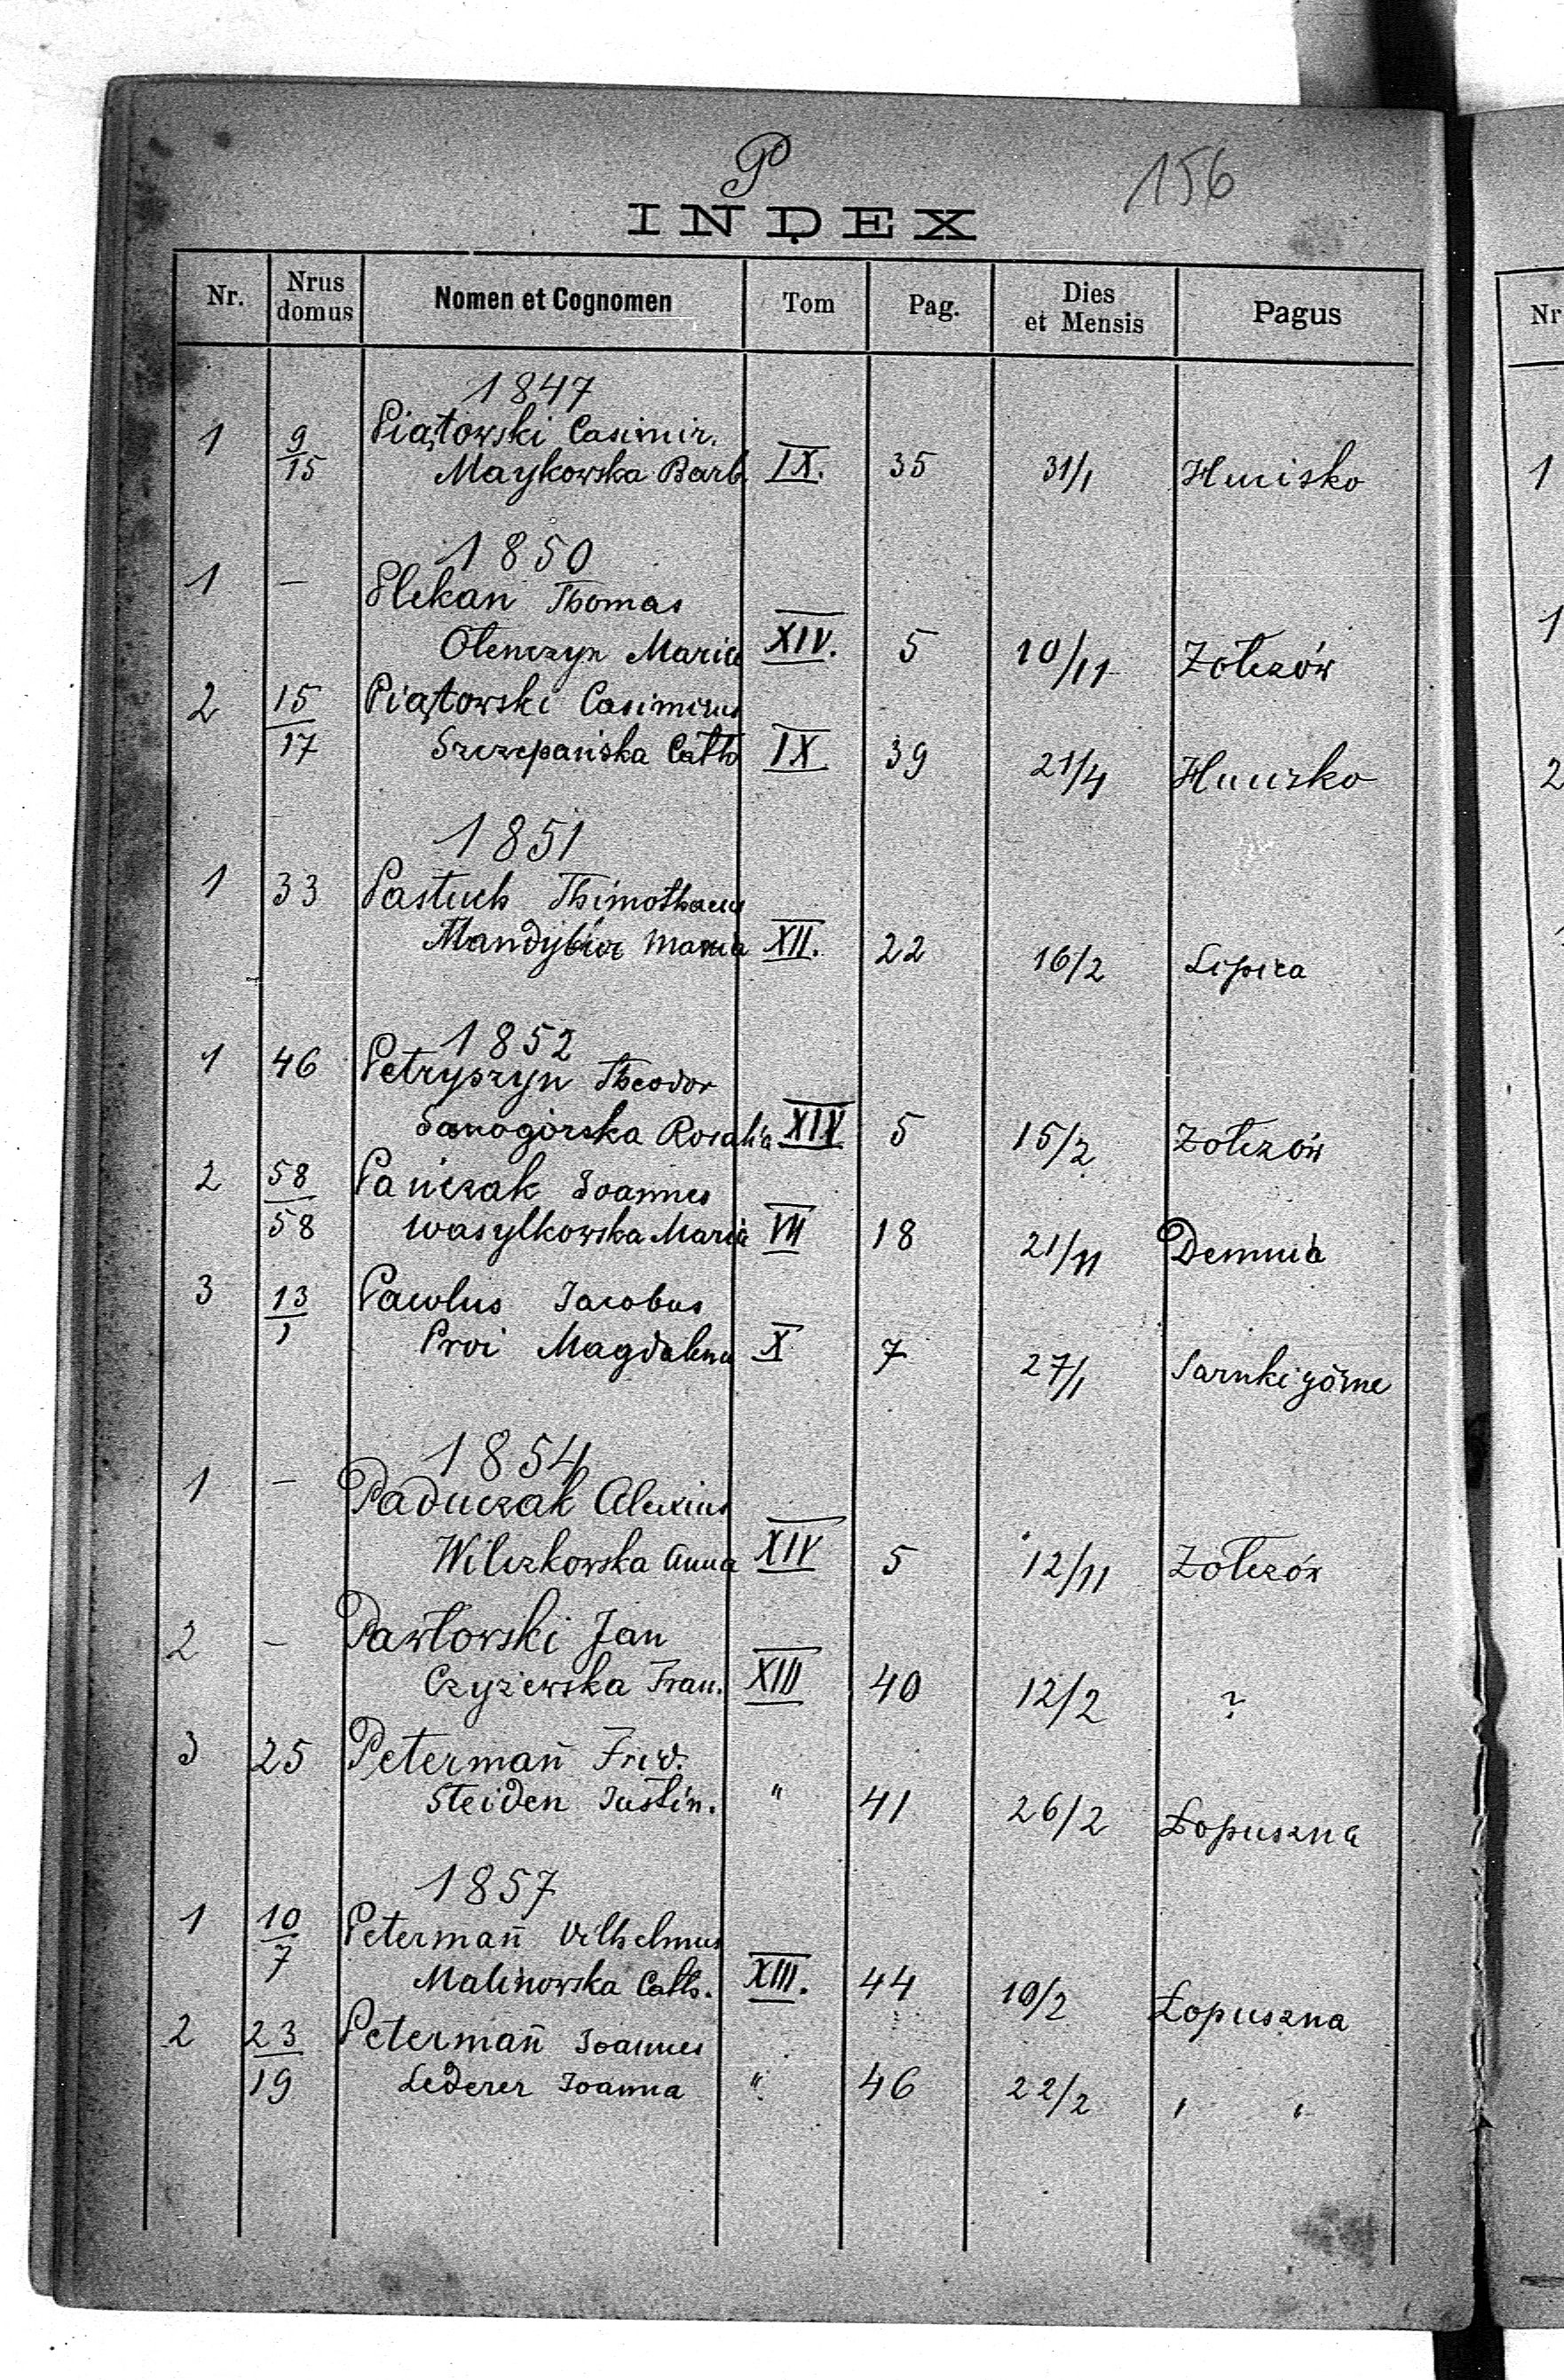 P
156
INDEX
Nr. Nrus domus Nomen et Cognomen Tom Pag. Dies et Mensis Pagus
1847
1 9/15 Piątowski Casimir.
Maykowska Barb. IX. 35 31/1 Hucisko
1850
1 — Slekan Thomas
Olenczyn Maria XIV. 5 10/11 Żółczów
2 15/17 Piątowski Casimirus
Szczepańska Cath IX 39 21/4 Hucisko
1851
1 33 Pastuch Thimothaeus
Mandybur Maria XII. 22 16/2 Lipica
1852
1 46 Petryszyn Theodor
Sanogórska Rosalia XIV 5 15/2 Żółczów
2 58/58 Pańczak Joannes
Wasylkowska Maria VII 18 21/11 Demnia
3 13/1 Pawlus Jacobus
Proi Magdalena X 7 27/1 Sarnki górne
1854
1 — Paduczak Alexius
Wilczkowska Anna XIV 5 12/11 Żółczów
2 — Pawłowski Jan
Czyżewska Fran. XIII 40 12/2 ?
3 25 Petermañ Frid.
Steiden Justin. " 41 26/2 Łopuszna
1857
1 10/7 Petermañ Vilhelmus
Malinowska Cath. XIII. 44 10/2 Łopuszna
2 23/19 Petermañ Joannes
Lederer Joanna " 46 22/2 " "
Nr
1
1
2